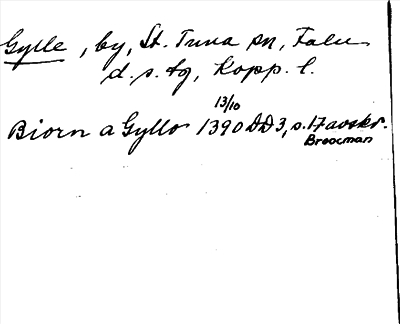 Gylle, by, St. Tuna sn, Falu
d. s. tg, Kopp. l.
13/10
Biorn a Gyllo 1390 DD3, s. 17 avskr.
Broocman